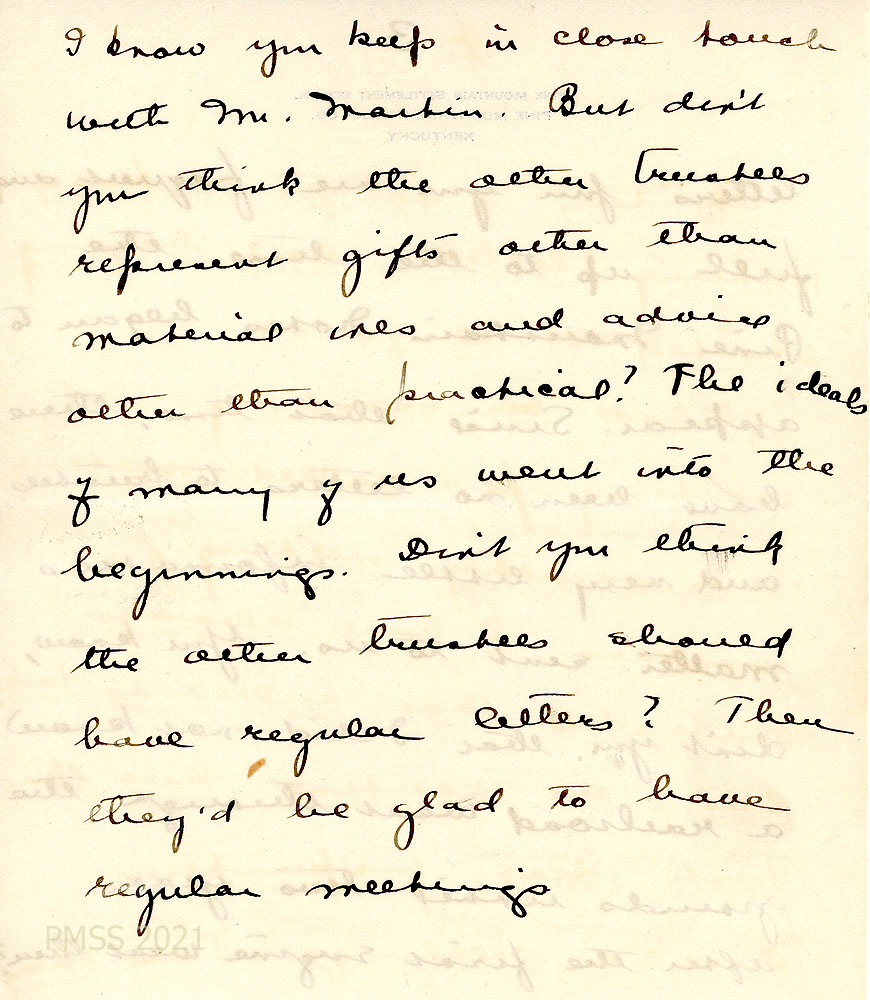 I know you keep in close touch
with Mr. Martin But don't
you think the other trustees
represent gifts other than
material ones and advice
other than practical? The ideals
of many of us went into the
beginnings. Don't you think
the other trustees should
have regular letters? Then
they'd be glad to have
regular meetings
PMSS 2021